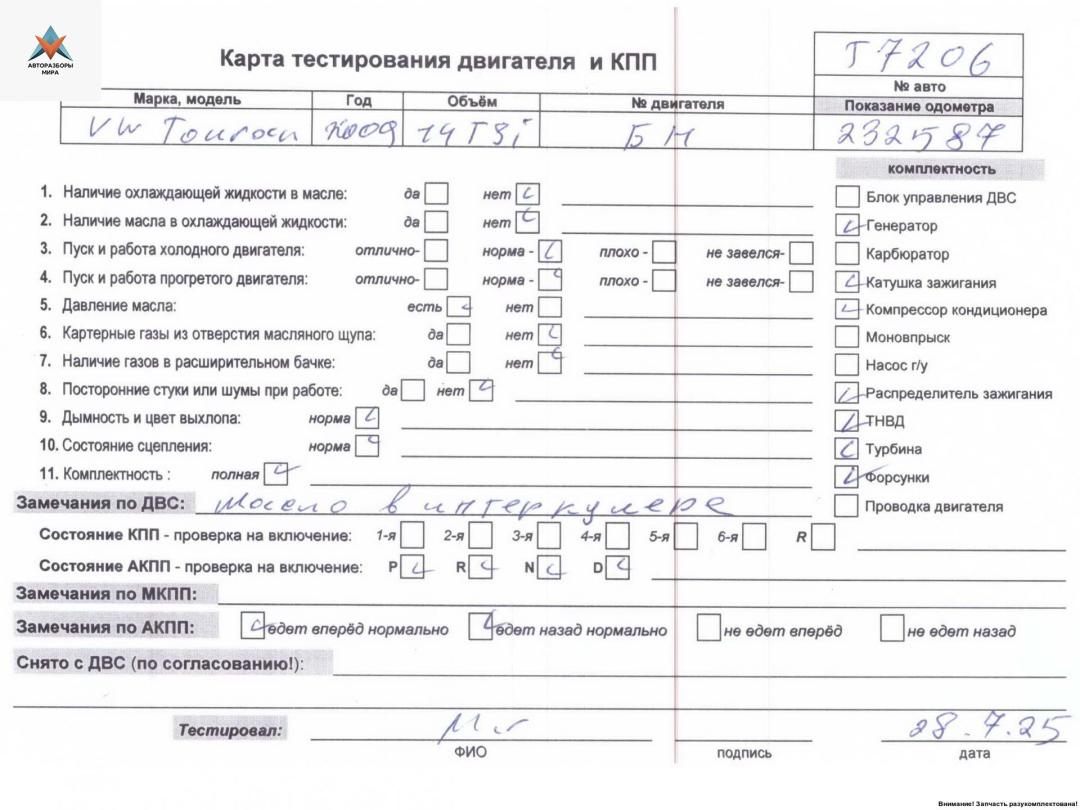 АВТОРАЗБОРЫ
МИРА
Карта тестирования двигателя и КПП
T7206
№ авто
Марка, модель Год Объём № двигателя Показание одометра
VW Touran 2009 14TSi БН 232587
комплектность
1. Наличие охлаждающей жидкости в масле: да нет
Блок управления ДВС
2. Наличие масла в охлаждающей жидкости: да нет
Генератор
3. Пуск и работа холодного двигателя: отлично- норма - плохо - не завелся-
Карбюратор
4. Пуск и работа прогретого двигателя: отлично- норма - плохо - не завелся-
Катушка зажигания
5. Давление масла: есть нет
Компрессор кондиционера
6. Картерные газы из отверстия масляного щупа: да нет
Моновпрыск
7. Наличие газов в расширительном бачке: да нет
Насос г/у
8. Посторонние стуки или шумы при работе: да нет
Распределитель зажигания
9. Дымность и цвет выхлопа: норма
ТНВД
10. Состояние сцепления: норма
Турбина
11. Комплектность : полная
Форсунки
Замечания по ДВС: масло в интеркулере
Проводка двигателя
Состояние КПП - проверка на включение: 1-я 2-я 3-я 4-я 5-я 6-я R
Состояние АКПП - проверка на включение: P R N D
Замечания по МКПП:
Замечания по АКПП: едет вперёд нормально едет назад нормально не едет вперёд не едет назад
Снято с ДВС (по согласованию!):
Тестировал: 28.7.25
ФИО подпись дата
Внимание! Запчасть разукомплектована!